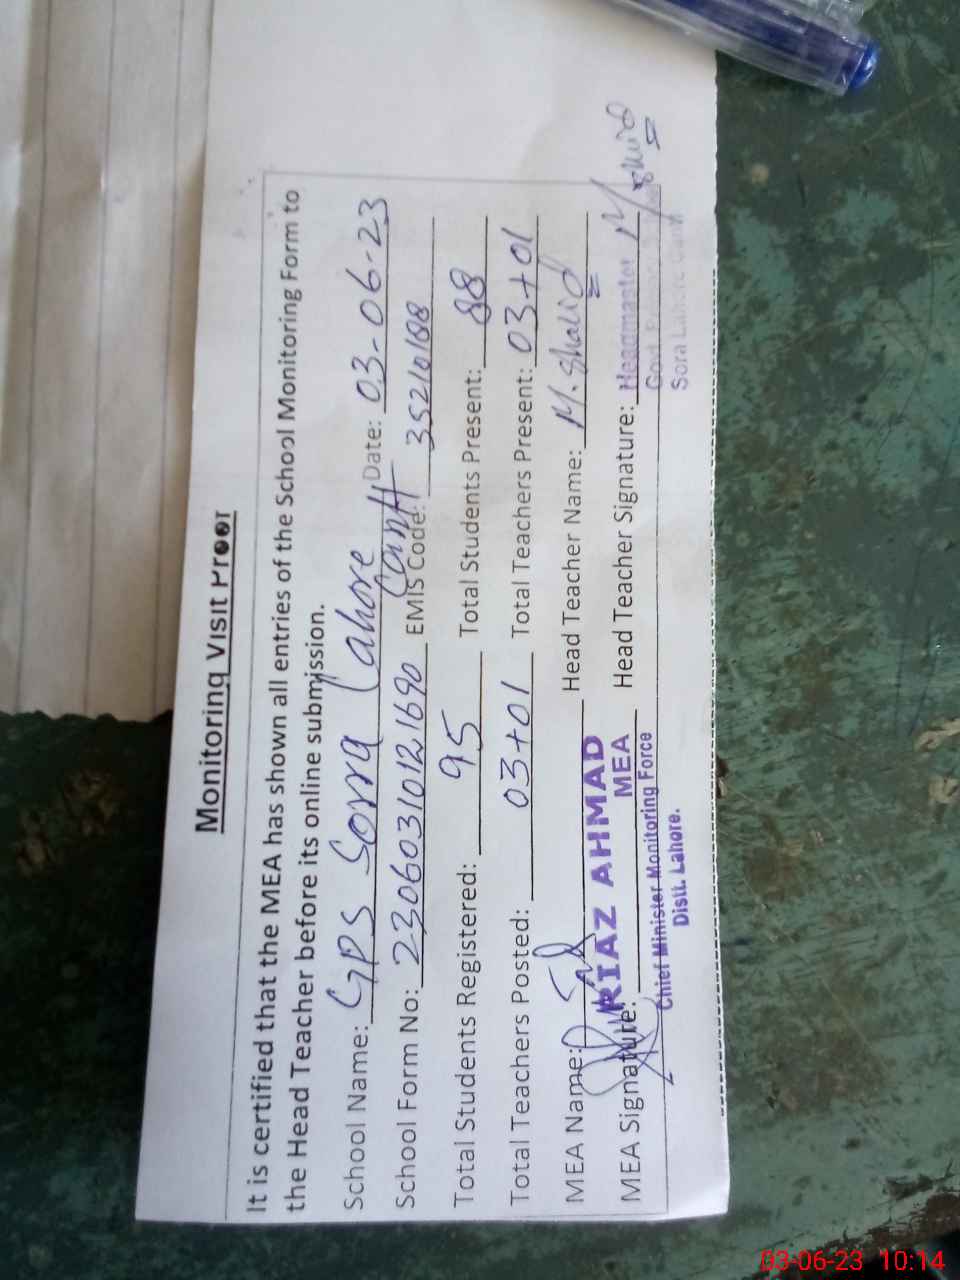 Monitoring Visit Proof
It is certified that the MEA has shown all entries of the School Monitoring Form to
the Head Teacher before its online submission.
School Name: GPS Sorra Lahore Cantt Date: 03-06-23
School Form No: 230603101121690 EMIS Code: 35210188
Total Students Registered: 95 Total Students Present: 88
Total Teachers Posted: 03+01 Total Teachers Present: 03+01
MEA Name: RIAZ AHMAD Head Teacher Name: M. Shahid
MEA
MEA Signature: Head Teacher Signature: Headmaster
Chief Minister Monitoring Force
Govt
Distt. Lahore.
Sora Lahore Cantt
03-06-23 10:14